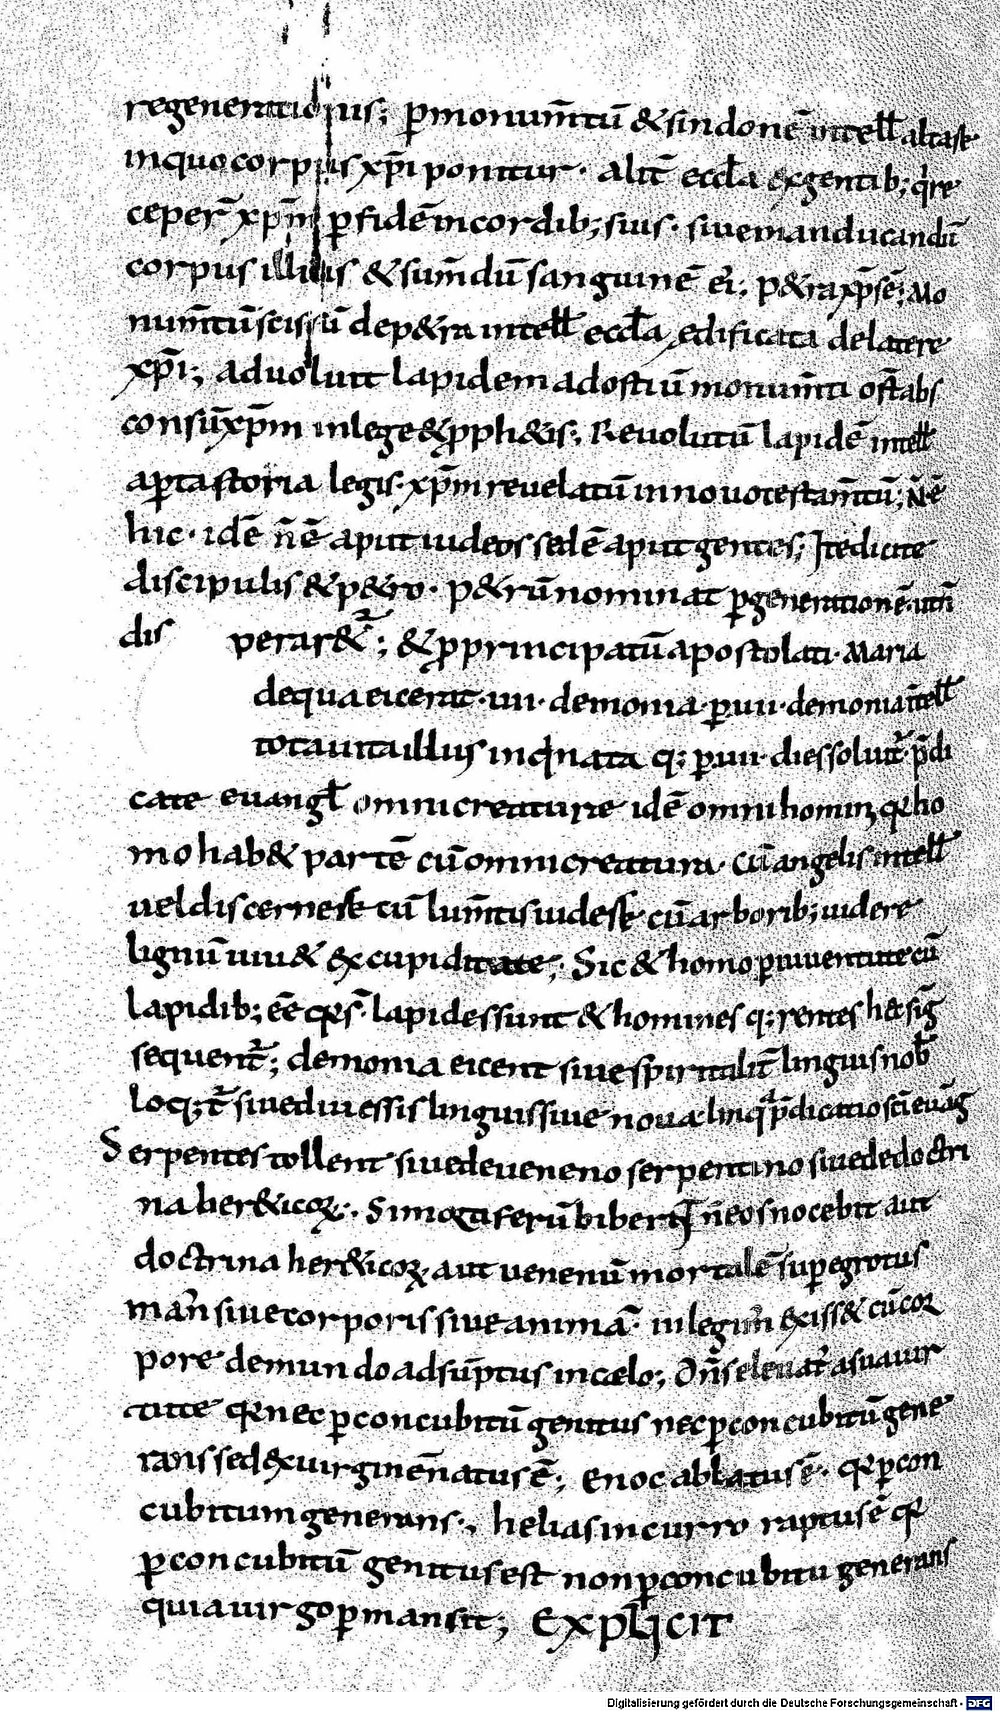 regenerationis; p̄ monum̄tū & sindonē intell̄ altare
inquo corpus xp̄i ponitur · alit̄ eccl̄a ex gentib; q̄ re
ceper̄ xp̄m p̄ fidē in cordib; suis · siue manducandū
corpus illius & sum̄dū sanguinē ei; p&ra xp̄s ē; Mo
num̄tū scissū de p&ra intell̄ eccl̄a edificata de latere
xp̄i; aduoluit lapidem ad ostiū monum̄ti ost̄ abs
consū xp̄m in lege & p̄ph&is; Reuolutū lapidē intell̄
ap̄ta storia legis · xp̄m reuelatū in nouo testam̄tū; N̄ ē
hic · idē n̄ ē aput iudeos sed ē aput gentes; Ite dicite
discipulis & p&ro · p&rū nominat p̄ generationē ·
dis perar&; & p̄p principatū apostolati · Maria
de qua eicerat · uii · demonia · p̄ uii · demonia intell̄
tota uita illius inq̄nata q; p̄ uii · dies soluit̄ · p̄di
cate euangl̄ omni creature idē omni homin; q̄ ho
mo hab& partē cū omni creatura · cū angelis intell̄
uel discernere cū lum̄tis uidere cū arborib; uidere
lignū uiu& ex cupiditate; Sic & homo p̄ iuuentute cū
lapidib; eē q̄ s̄ lapides sunt & homines q; rentes hec sig̅
sequent̄; demonia eicent siue spiritalit̄ linguis nob̄
loq;t̄ siue diuessis linguis siue noua linq̄ p̄dicatio sc̄i euāg
Serpentes tollent siue de ueneno serpentino siue de doctri
na her&icoꝝ; Si mortiferū biberit n̄ eos nocebit aut
doctrina her&icoꝝ aut uenenū mortalē sup̄ egrotus
man̄ siue corporis siue animā · in legim̄ exiss& cū cor
pore de mundo adsūptus in caelo; Dn̄s eleuat̄ a sua uir
tute q̄ nec p̄ concubitū genitus nec p̄ concubitū gene
rans sed ex uirginē natus ē; Enoc ablatus ē · q̄ p̄ con
cubitum generans; helias in curro raptus ē q̄
p̄ concubitū genitus est non p̄ concubitu generans
quia uirgo p̄mansit; Explicit
Digitalisierung gefördert durch die Deutsche Forschungsgemeinschaft - DFG